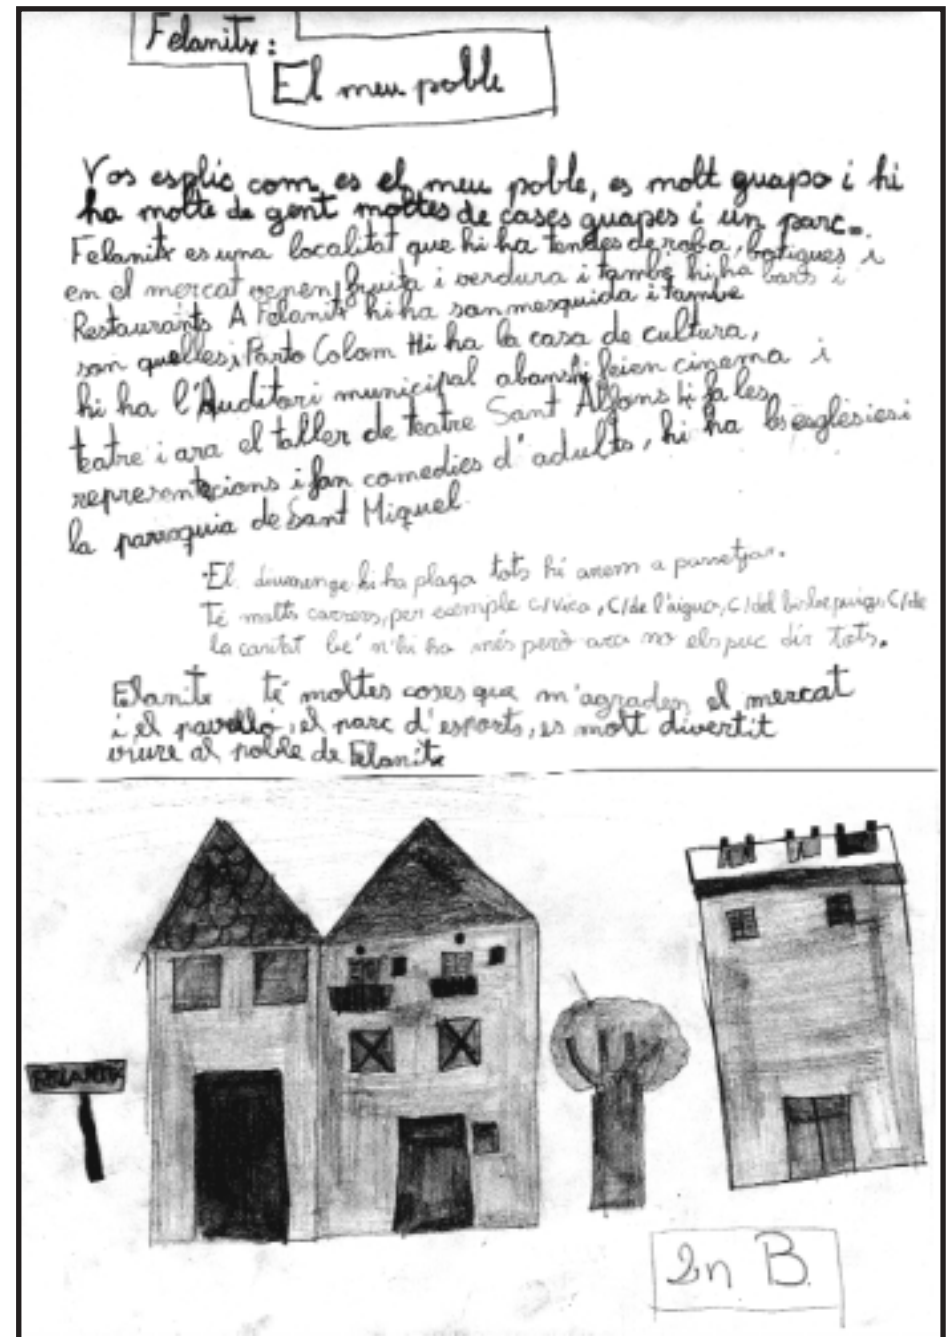 Felanitx:
El meu poble
Vos esplic com es el meu poble, es molt guapo i hi
ha molte de gent moltes de cases guapes i un parc.
Felanitx es una localitat que hi ha tendes de roba, botigues i
en el mercat venen fruita i verdura i també hi ha bars i
Restaurants A Felanitx hi ha son mesquida i tambe
son quelles i Porto Colom Hi ha la casa de cultura,
hi ha l'Auditori municipal abans hi feien cinema i
teatre i ara el taller de teatre Sant Alfons hi fa les
representacions i fan comedies d'adults, hi ha les esglèsies i
la parroquia de Sant Miquel.
El diumenge hi ha plaça tots hi anem a passetjar.
Té molts carrers, per exemple c/Vica, C/de l'aigua, C/del C/de
la caritat be' n'hi ha més però ara no els puc dir tots.
Felanitx té moltes coses que m'agraden el mercat
i el pavelló, el parc d'esports, es molt divertit
viure al poble de Felanitx
FELANITX
2n B.